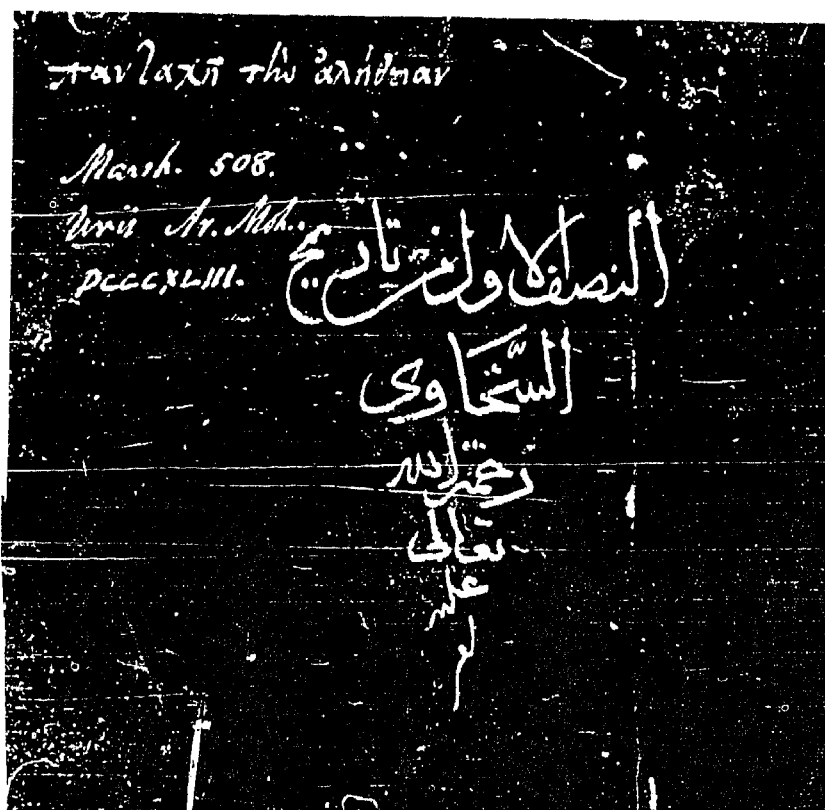 πανταχῆ τὴν ἀλήθειαν
Marsh. 508.
Uri's Ar. Moh.
DCCCXLIII.
النصف الاول من تاريخ
السَّخاوي
رحمة الله
تعالى
عليه